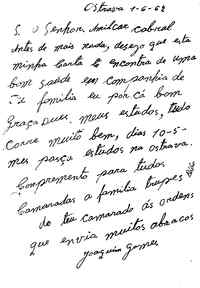 Ostrava 1-6-62
S. o Senhor Amilcar Cabral
Antes de mais nada, desejo que esta
minha carta o encontra de uma
bom saude em companhia de
familia eu por cá bom
graça Deus. meus estudos, tudo
corre muito bem, dias 10-5-
mes parça estudos na ostrava.
Compremento para tudos
Camaradas a familia
de teu camarado ás ordens
que envia muitos abraços
Joaquim Gomes